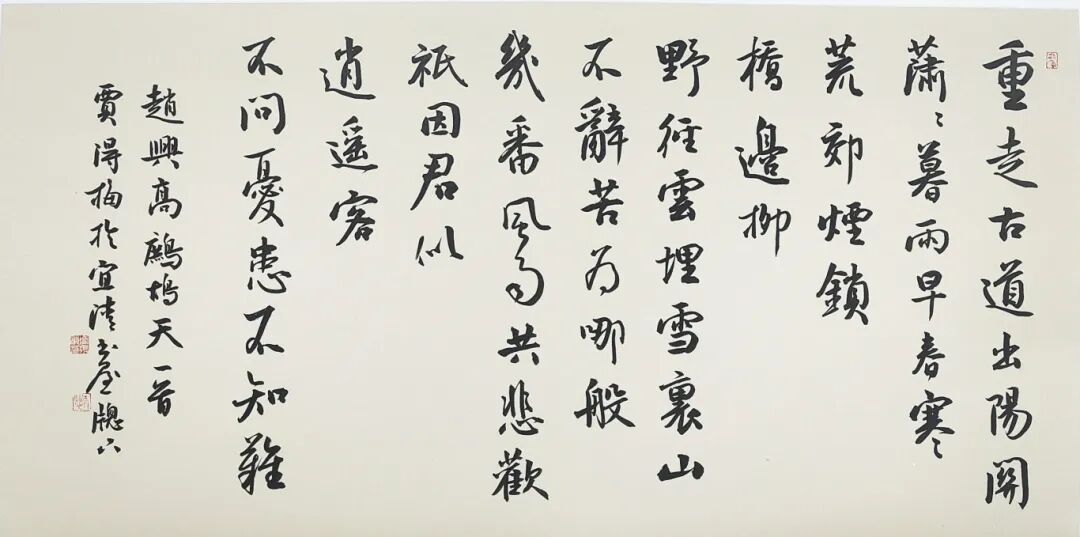 重走古道出陽關
蕭〻暮雨早春寒〻
荒郊煙鎖
橋邊柳
野徑雲埋雪裏山
不辭苦為哪般
幾番風雨共悲歡
祇因君似
逍遥客
不問憂患不知難
趙興高鷓鴣天一首
賈得梅於宜清書屋牕下